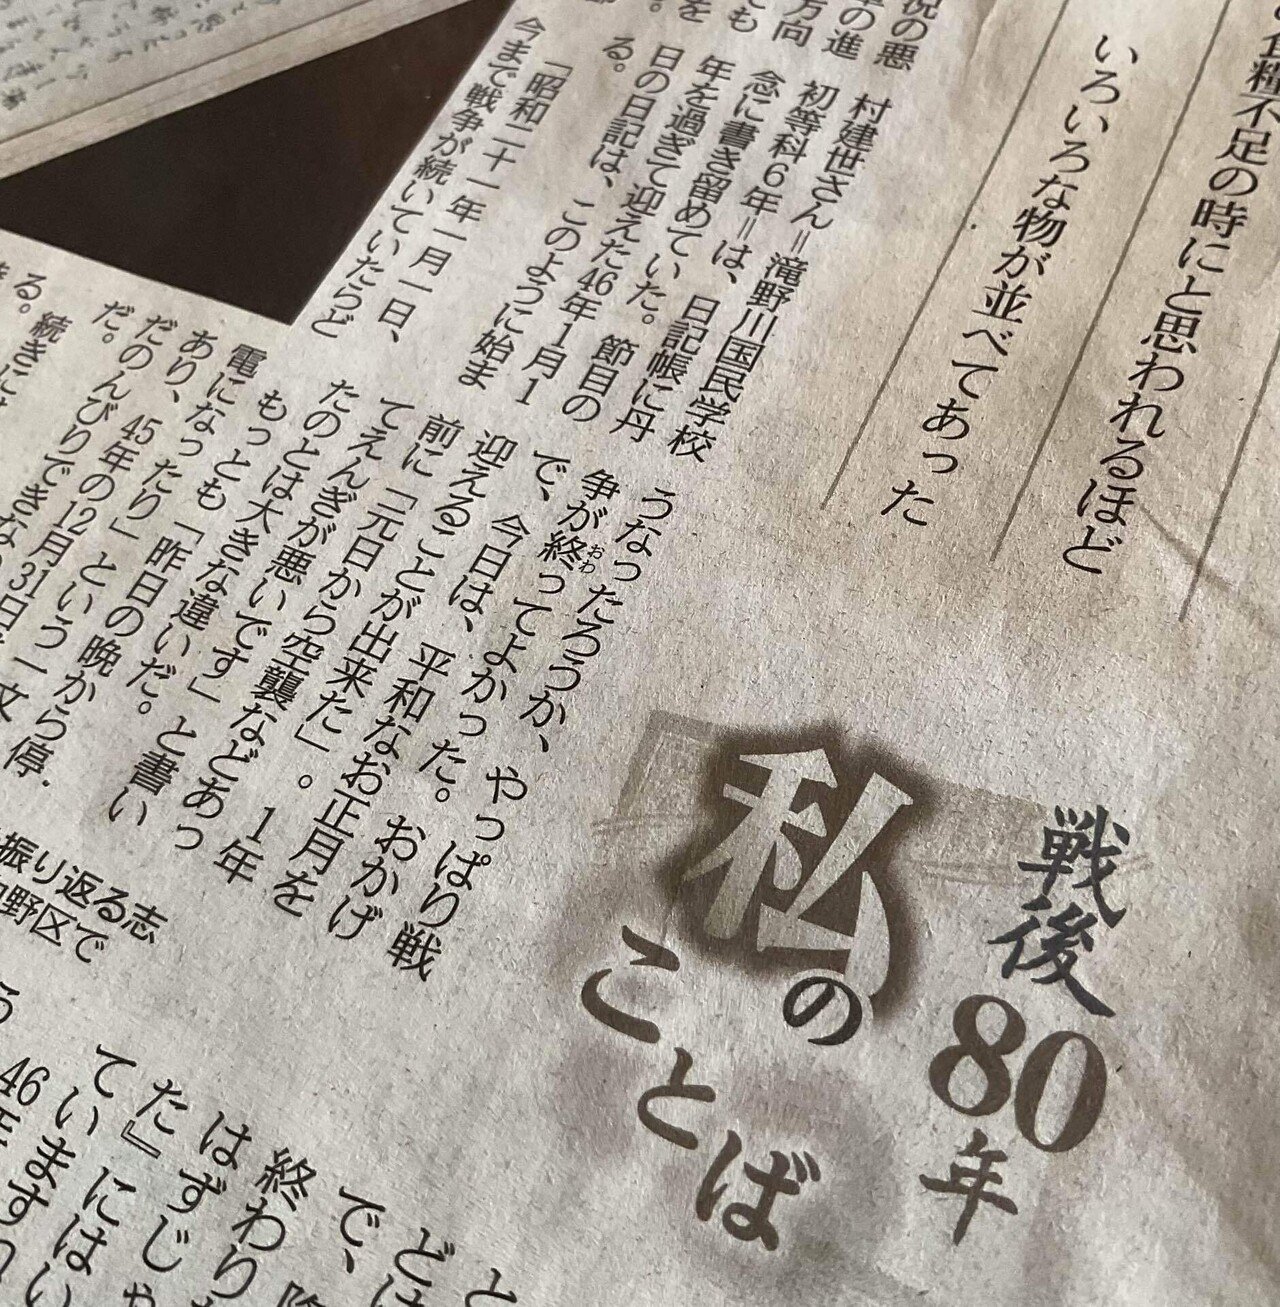 食糧不足の時にと思われるほど
いろいろな物が並べてあった
戦後80年
私の
ことば
況の悪
の進
方向
ても
を
村建世さん＝滝野川国民学校
初等科６年＝は、日記帳に丹
念に書き留めていた。節目の
年を過ぎて迎えた46年１月１
日の日記は、このように始ま
る。
「昭和二十一年一月一日、
今まで戦争が続いていたらど
うなったろうか、やっぱり戦
争が終おわってよかった。おかげ
で、今日は、平和なお正月を
迎えることが出来た」。１年
前に「元日から空襲などあっ
てえんぎが悪いです」と書い
たのとは大きな違いだ。
もっとも「昨日の晩から停
電になったり」という一文
あり、45年の12月31日
だのんびりできな
だ。
る。続きに
振り返る志
野区で
で、
終わり
はずじゃ
た』にはい
ています
46